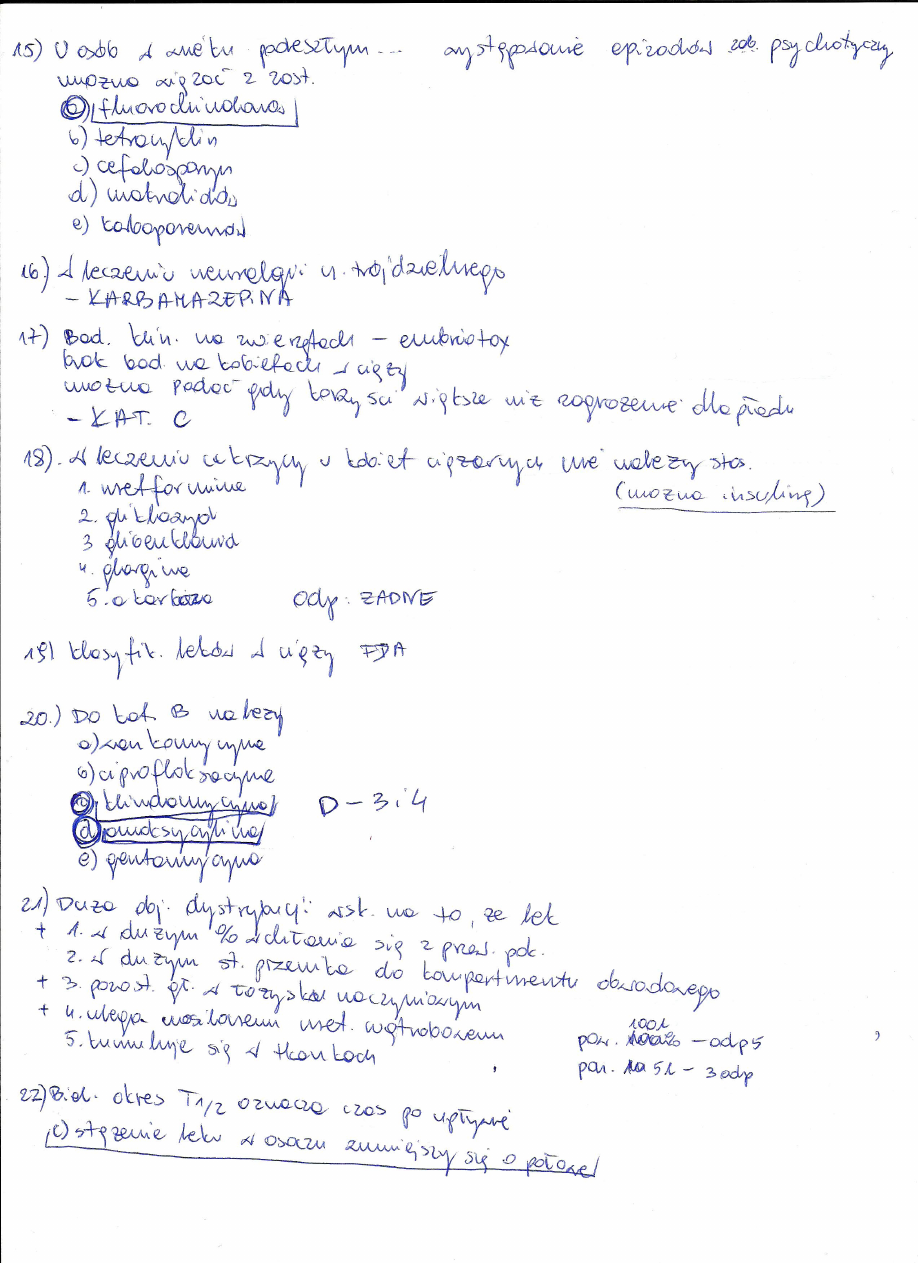 15) U osób w wieku podeszłym... występowanie epizodów zab. psychotyczny
można wiązać z zast.
a) fluorochinolonów
b) tetracyklin
c) cefalosporyn
d) makrolidów
e) karbapenemów
16) W leczeniu neuralgii n. trójdzielnego
- KARBAMAZEPINA
17) Bad. klin. na zwierzętach - embriotox
brak bad. na kobietach w ciąży
można podać gdy korzyści większe niż zagrożenie dla płodu
- KAT. C
18). W leczeniu cukrzycy u kobiet ciężarnych nie należy stos.
1. metformina (można insulinę)
2. gliklazyd
3 glibenklamid
4. glargina
5. akarboza odp: ŻADNE
19) klasyfik. leków w ciąży FDA
20.) Do kat. B należy
a) wankomycyna
b) ciprofloksacyna
c) klindamycyna D - 3 i 4
d) amoksycylina
e) gentamycyna
21) Duża obj. dystrybucji wsk. na to, że lek
+ 1. w dużym % wchłania się z przew. pok.
2. w dużym st. przenika do kompartmentu obwodowego
+ 3. pozost. gł. w łożysku naczyniowym
+ 4. ulega nasilonemu met. wątrobowemu
5. kumuluje się w tkankach pow. 100l - odp 5
pon. 5l - 3 odp
22) Biol. okres T1/2 oznacza czas po upływie
c) stężenie leku w osoczu zmniejszy się o połowę